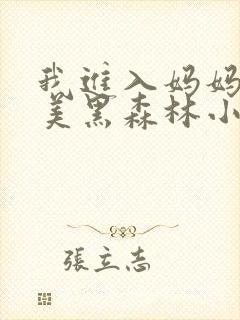 我進入妈妈
美黑森林小
張立志